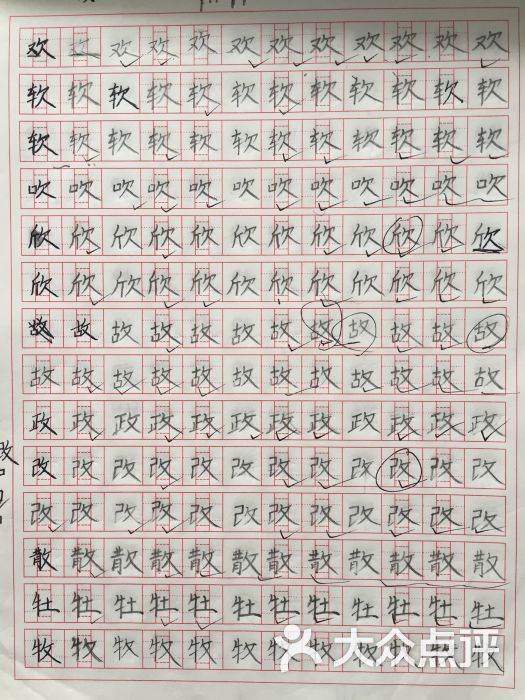 欢欢欢欢欢欢欢欢欢欢欢欢
软软软软软软软软软软软软
软软软软软软软软软软软软
吹吹吹吹吹吹吹吹吹吹吹吹
欣欣欣欣欣欣欣欣欣欣欣欣
欣欣欣欣欣欣欣欣欣欣欣欣
故故故故故故故故故故故故
故故故故故故故故故故故故
政政政政政政政政政政政政
改改改改改改改改改改改改
改改改改改改改改改改改改
散散散散散散散散散散散散
牡牡牡牡牡牡牡牡牡牡牡牡
牧牧牧牧牧牧牧牧牧牧牧牧
大众点评